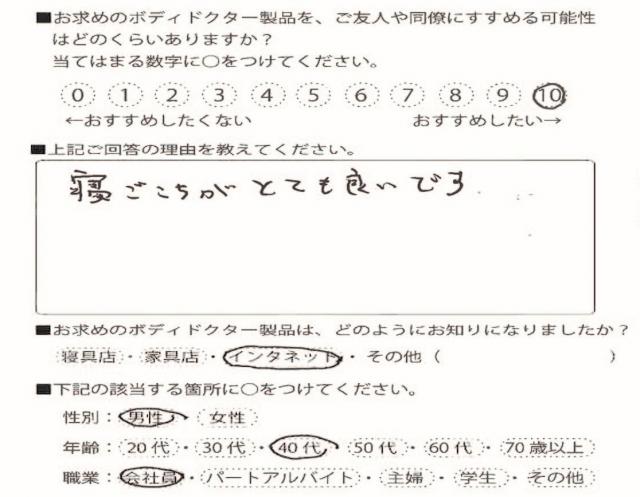 ■お求めのボディドクター製品を、ご友人や同僚にすすめる可能性
はどのくらいありますか？
当てはまる数字に○をつけてください。
0 1 2 3 4 5 6 7 8 9 10
←おすすめしたくない おすすめしたい→
■上記ご回答の理由を教えてください。
寝ごこちがとても良いです
■お求めのボディドクター製品は、どのようにお知りになりましたか？
寝具店・家具店・インタネット・その他（ ）
■下記の該当する箇所に○をつけてください。
性別：男性・女性
年齢：20代・30代・40代・50代・60代・70歳以上
職業：会社員・パートアルバイト・主婦・学生・その他